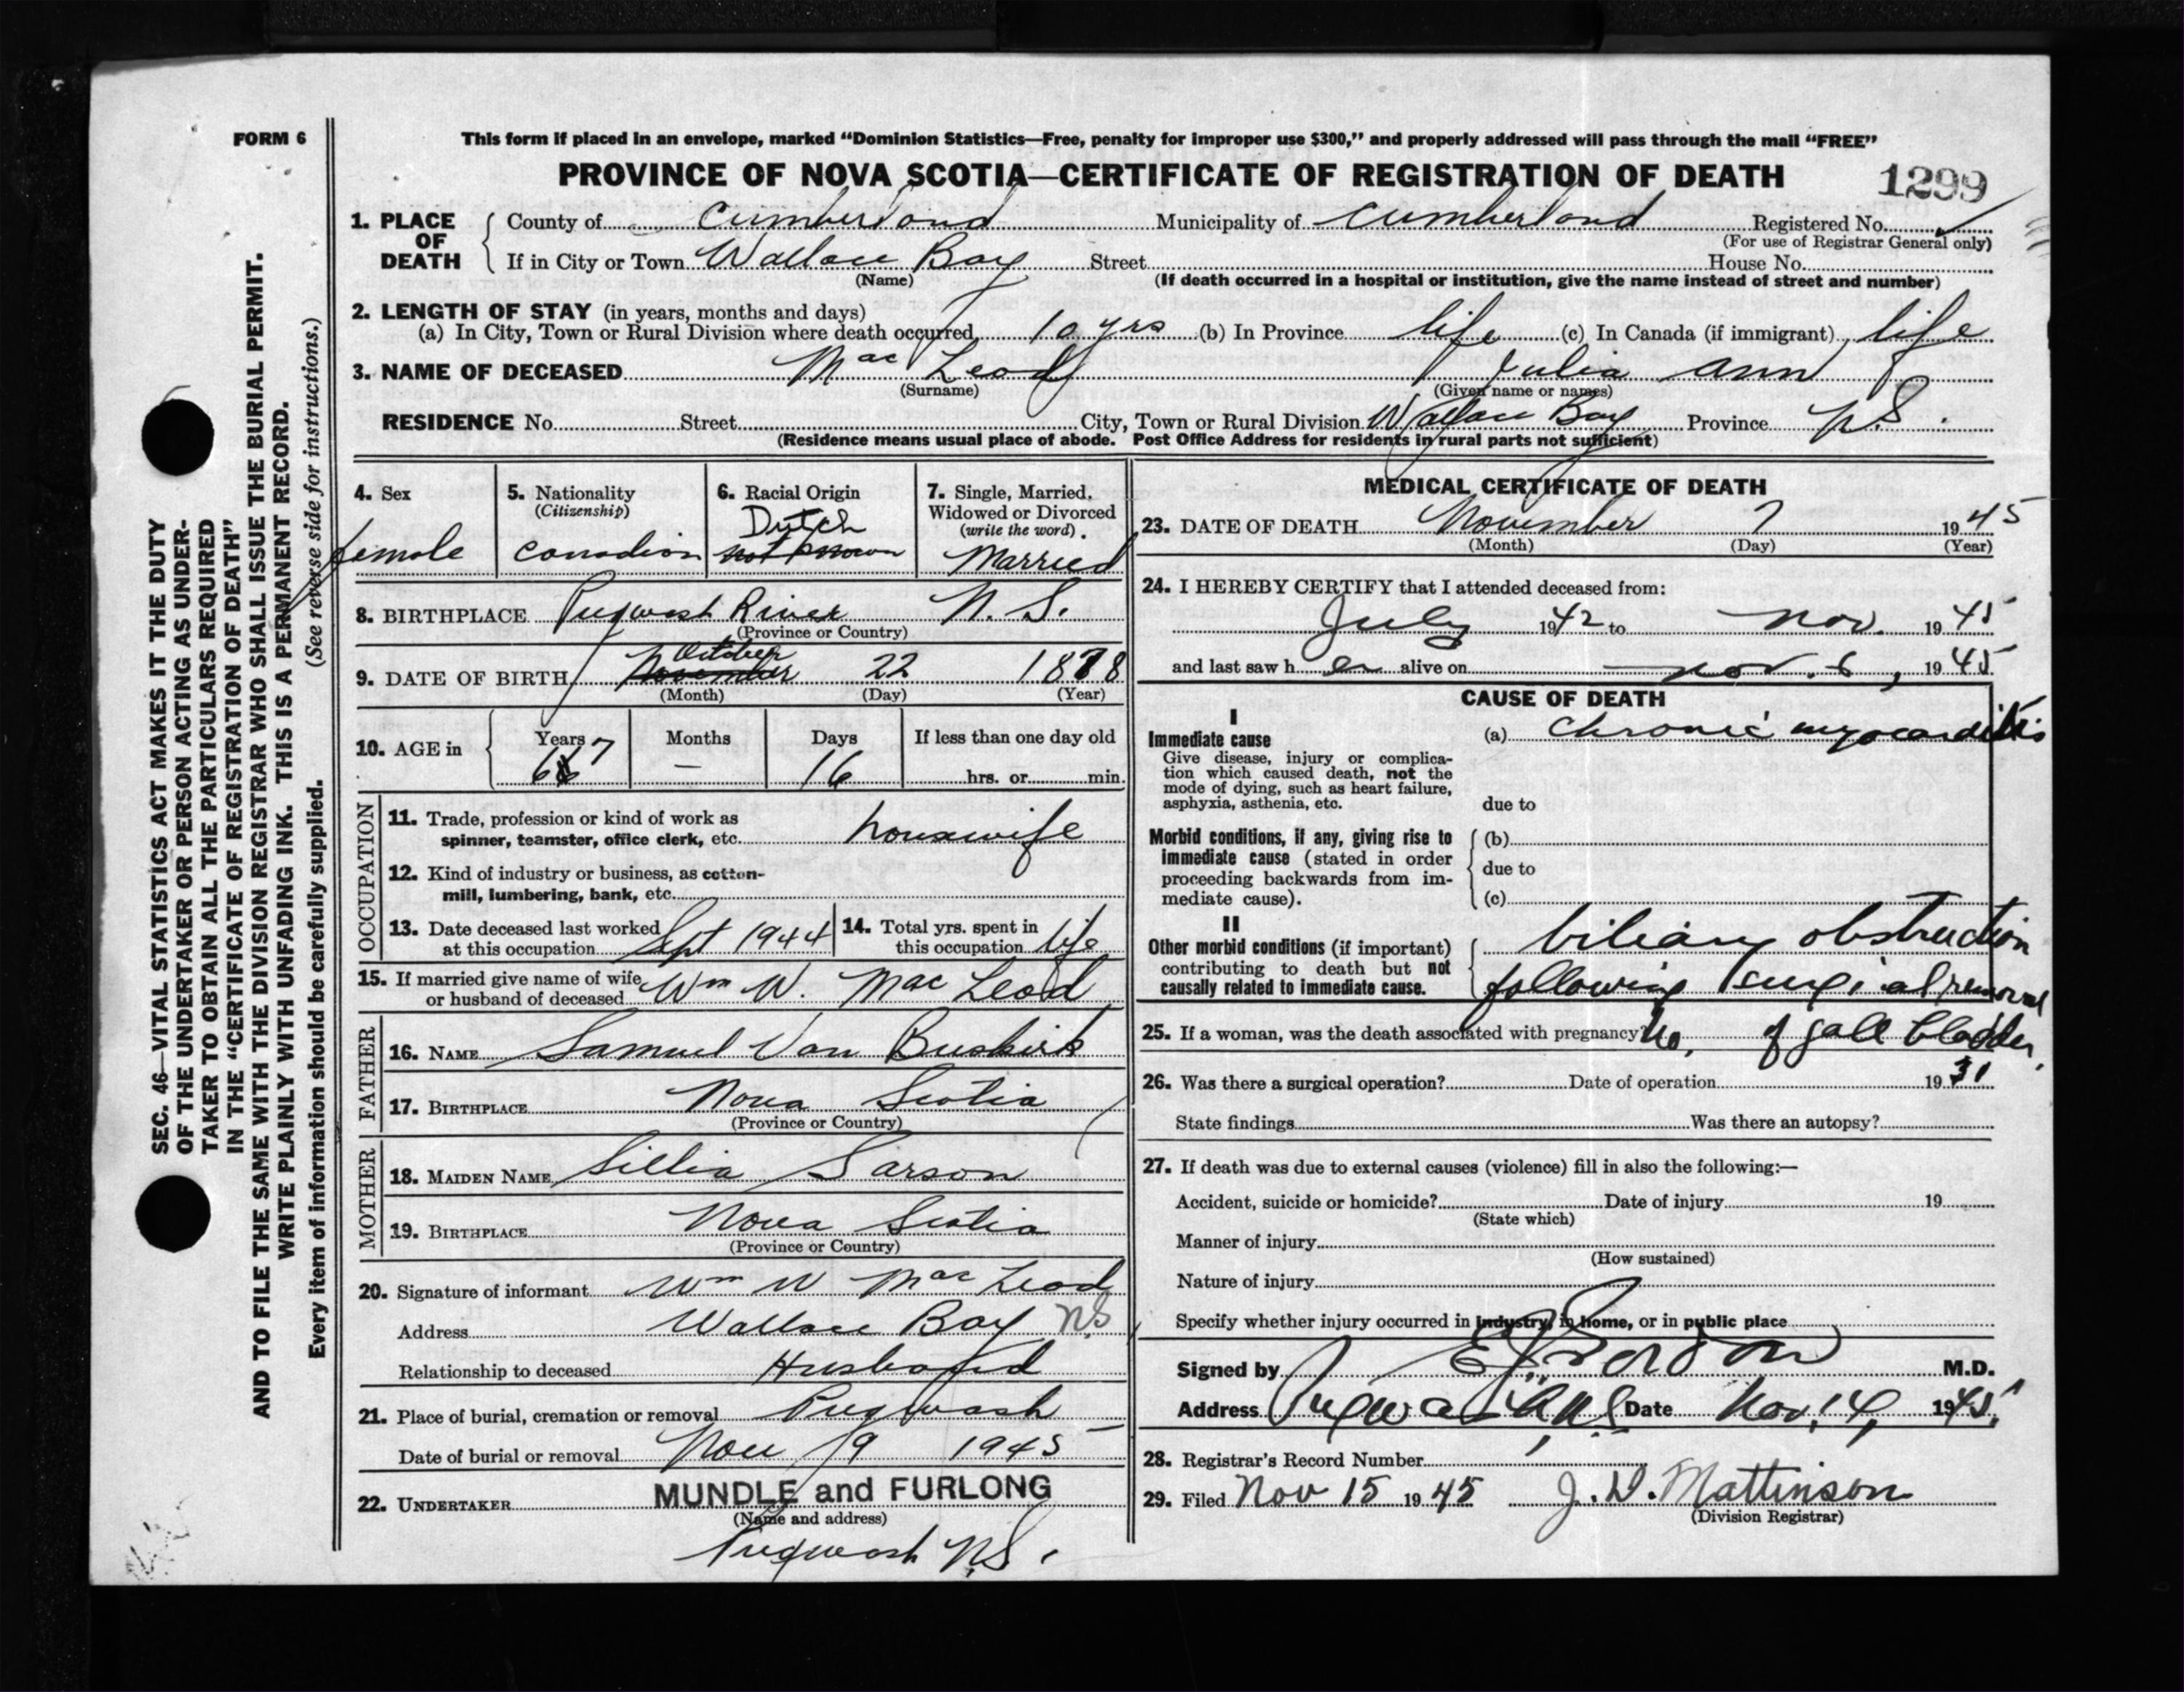 FORM 6
This form if placed in an envelope, marked “Dominion Statistics—Free, penalty for improper use $300,” and properly addressed will pass through the mail “FREE”
PROVINCE OF NOVA SCOTIA—CERTIFICATE OF REGISTRATION OF DEATH
1299
1. PLACE OF DEATH
County of Cumberland Municipality of Cumberland Registered No.
(For use of Registrar General only)
If in City or Town Wallace Bay Street House No.
(Name) (If death occurred in a hospital or institution, give the name instead of street and number)
2. LENGTH OF STAY (in years, months and days)
(a) In City, Town or Rural Division where death occurred 10 yrs (b) In Province life (c) In Canada (if immigrant) life
3. NAME OF DECEASED Mac Leod Julia Ann
(Surname) (Given name or names)
RESIDENCE No. Street City, Town or Rural Division Wallace Bay Province N.S.
(Residence means usual place of abode. Post Office Address for residents in rural parts not sufficient)
4. Sex
female
5. Nationality
(Citizenship)
Canadian
6. Racial Origin
Dutch
not known
7. Single, Married, Widowed or Divorced
(write the word)
Married
8. BIRTHPLACE Pugwash River N.S.
(Province or Country)
October
9. DATE OF BIRTH November 22 1878
(Month) (Day) (Year)
10. AGE in Years Months Days If less than one day old
67 — 16 hrs. or min.
OCCUPATION
11. Trade, profession or kind of work as
spinner, teamster, office clerk, etc. housewife
12. Kind of industry or business, as cotton-
mill, lumbering, bank, etc.
13. Date deceased last worked
at this occupation Sept 1944
14. Total yrs. spent in
this occupation life
15. If married give name of wife
or husband of deceased Wm W. Mac Leod
FATHER
16. NAME Samuel Van Buskirk
17. BIRTHPLACE Nova Scotia
(Province or Country)
MOTHER
18. MAIDEN NAME Lillia Sarson
19. BIRTHPLACE Nova Scotia
(Province or Country)
20. Signature of informant Wm W Mac Leod
Address Wallace Bay NS
Relationship to deceased Husband
21. Place of burial, cremation or removal Pugwash
Date of burial or removal Nov 9 1945
22. UNDERTAKER MUNDLE and FURLONG
(Name and address)
Pugwash N.S.
MEDICAL CERTIFICATE OF DEATH
23. DATE OF DEATH November 7 1945
(Month) (Day) (Year)
24. I HEREBY CERTIFY that I attended deceased from:
July 1942 to Nov. 1945
and last saw her alive on Nov. 6, 1945
CAUSE OF DEATH
I
Immediate cause (a) Chronic myocarditis
Give disease, injury or complica-
tion which caused death, not the
mode of dying, such as heart failure,
asphyxia, asthenia, etc. due to
Morbid conditions, if any, giving rise to (b)
immediate cause (stated in order
proceeding backwards from im- due to
mediate cause). (c)
II
Other morbid conditions (if important) biliary obstruction
contributing to death but not
causally related to immediate cause. following surgical removal
of gall bladder.
25. If a woman, was the death associated with pregnancy? No.
26. Was there a surgical operation? Date of operation 1931
State findings Was there an autopsy?
27. If death was due to external causes (violence) fill in also the following:—
Accident, suicide or homicide? Date of injury 19
(State which)
Manner of injury
(How sustained)
Nature of injury
Specify whether injury occurred in industry, in home, or in public place
Signed by M.D.
Address Pugwash, N.S. Date Nov. 14, 1945.
28. Registrar's Record Number
29. Filed Nov 15 1945 J. D. Mattinson
(Division Registrar)
SEC. 46—VITAL STATISTICS ACT MAKES IT THE DUTY
OF THE UNDERTAKER OR PERSON ACTING AS UNDER-
TAKER TO OBTAIN ALL THE PARTICULARS REQUIRED
IN THE “CERTIFICATE OF REGISTRATION OF DEATH”
AND TO FILE THE SAME WITH THE DIVISION REGISTRAR WHO SHALL ISSUE THE BURIAL PERMIT.
WRITE PLAINLY WITH UNFADING INK. THIS IS A PERMANENT RECORD.
Every item of information should be carefully supplied. (See reverse side for instructions.)